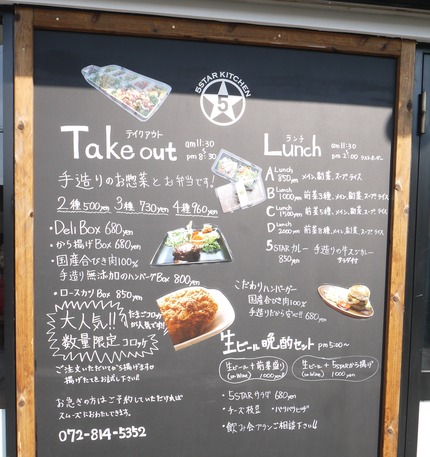 5STAR KITCHEN
5
テイクアウト
Take out
am11:30
～
pm8:30
手造りのお惣菜とお弁当です!
2種500yen 3種730yen 4種960yen
・Deli Box 680yen
・から揚げBox 680yen
・国産合びき肉100%
手造り無添加のハンバーグBox 800yen
・ロースカツBox 850yen
大人気!!
数量限定コロッケ
たまごコロッケが人気です!
ご注文いただいてから揚げます♡
揚げたてをお試し下さい!!
お急ぎの方はご予約していただければ
スムーズにおわたしできます。
072-814-5352
ランチ
Lunch
am11:30
～
pm2:00 ラストオーダー
A Lunch 850yen メイン、副菜、スープ、ライス
B Lunch 1000yen 前菜3種、メイン、副菜、スープ、ライス
C Lunch 前菜5種、メイン、副菜、スープ、ライス
D Lunch 2000yen 前菜8種、メイン、副菜、スープ、ライス
5STARカレー 手造りの牛スジカレー
850yen サラダ付
こだわりハンバーガー
国産合びき肉100%
手造りだから安心!! 680yen
生ビール晩酌セット pm5:00～
生ビール+前菜盛り
(or Wine) 1000yen
生ビール+5STARから揚げ
(or Wine) 1000yen
・5STARサラダ 680yen
・チーズ枝豆
・飲み会プランご相談下さい!!